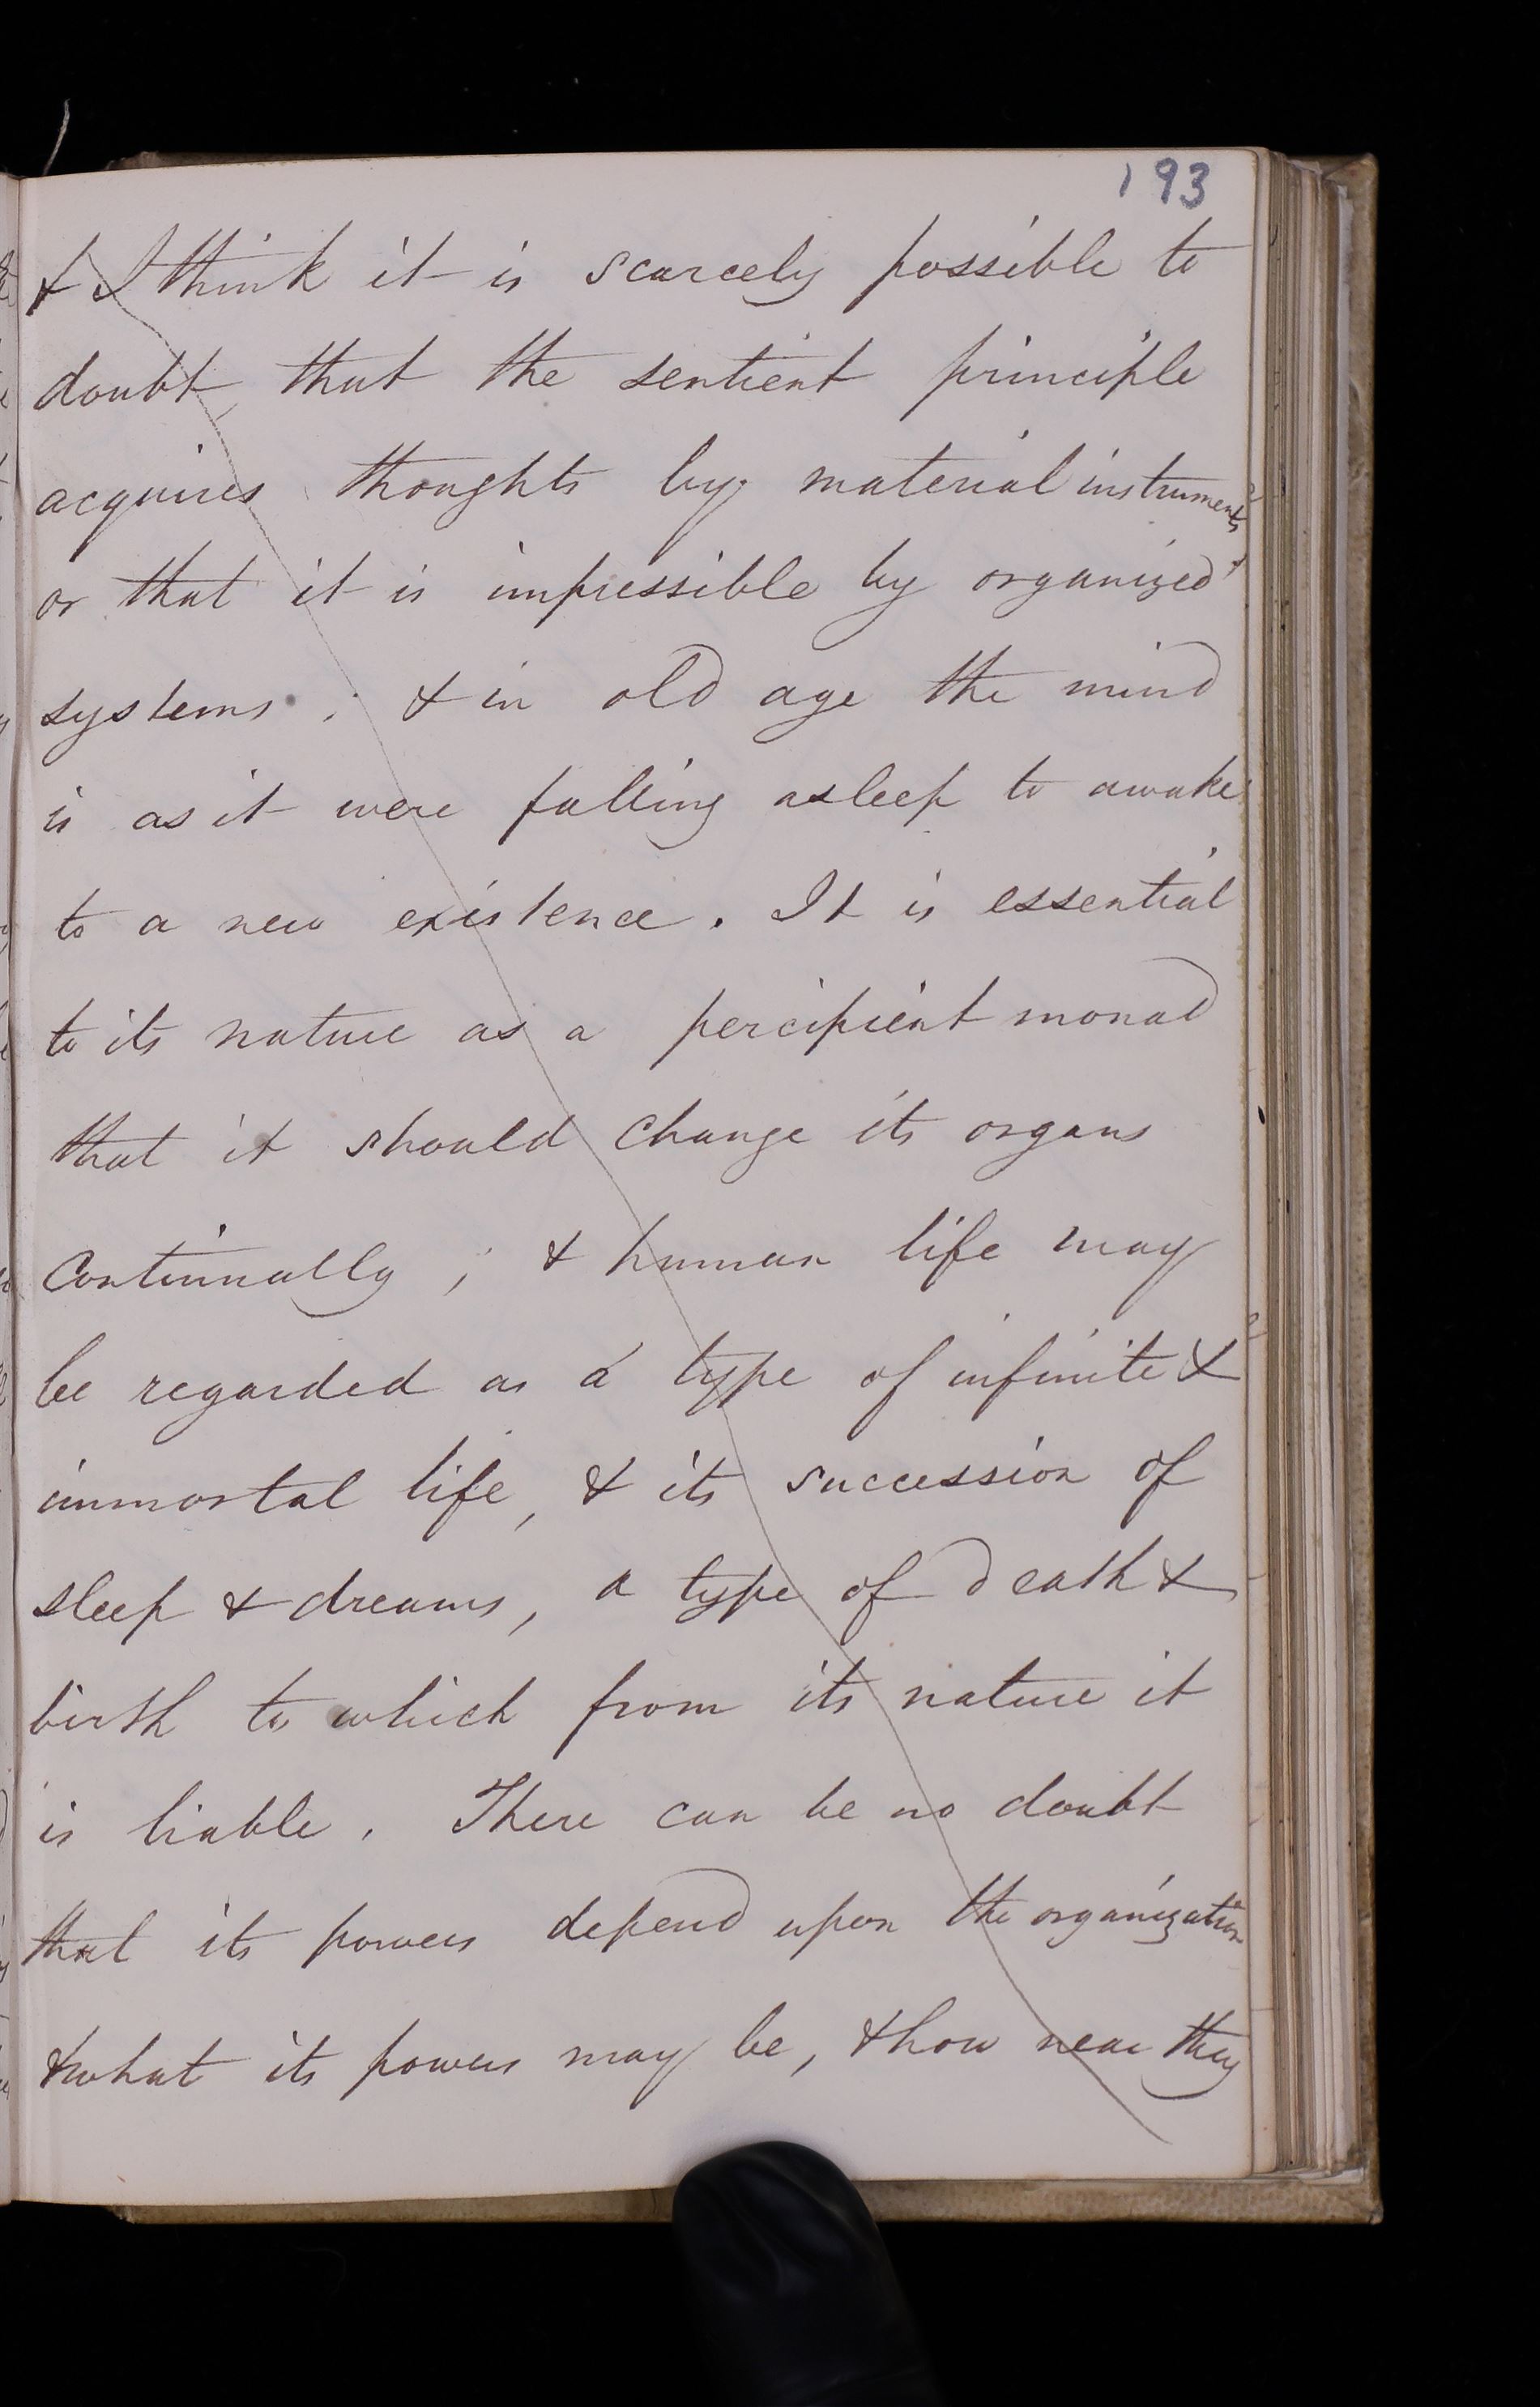 193
& I think it is scarcely possible to
doubt, that the sentient principle
acquires thoughts by material instruments
or that it is impressible by organized
systems ; & in old age the mind
is as it were falling asleep to awake
to a new existence. It is essential
to its nature as a percipient monad
that it should change its organs
continually ; & human life may
be regarded as a type of infinite &
immortal life, & its succession of
sleep & dreams, a type of death &
birth to which from its nature it
is liable. There can be no doubt
that its powers depend upon the organization
& what its powers may be, & how near they